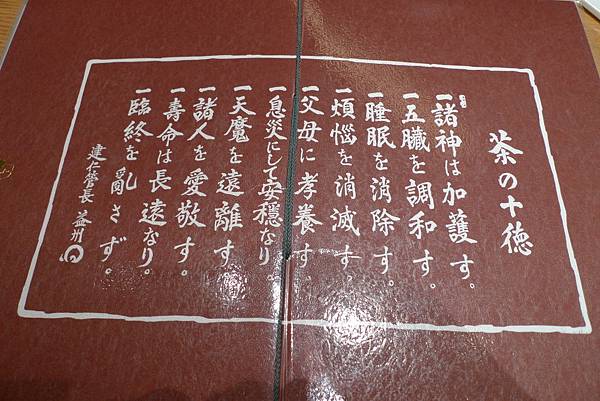 茶の十徳
一諸神は加護す。
一五臓を調和す。
一睡眠を消除す。
一煩悩を消滅す。
一父母に孝養す、
一息災にして安穏なり
一天魔を遠離す
一諸人を愛敬す。
一壽命は長遠なり。
一臨終を乱さず。
建仁管長 益州